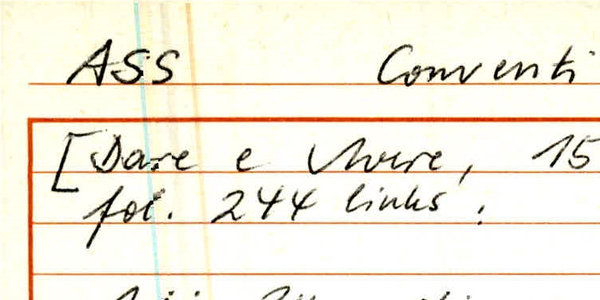 ASS Conventi
[Dare e Avere, 15
fol. 244 links :